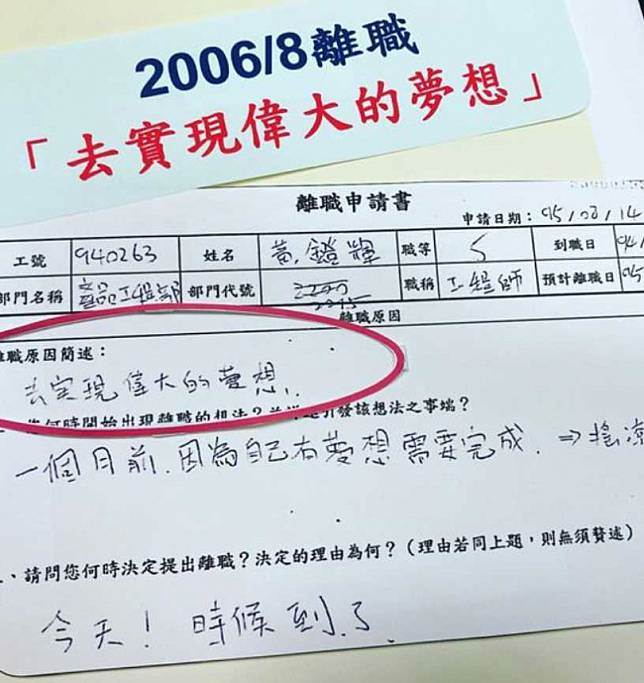 2006/8離職
「去實現偉大的夢想」
離職申請書
申請日期：95/08/14
工號 940263 姓名 黃鐙輝 職等 5 到職日 94/
部門名稱 產品工程部 部門代號 職稱 工程師 預計離職日 95
離職原因
離職原因簡述：
去實現偉大的夢想..
您何時開始出現離職的想法？並 引發該想法之事端？
一個月前.因為自己有夢想需要完成.⇒搖滾
、請問您何時決定提出離職？決定的理由為何？（理由若同上題，則無須贅述）
今天！時候到了.